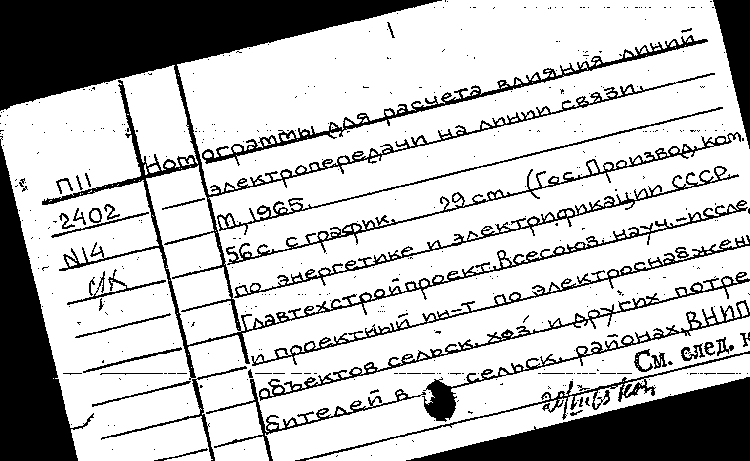 Номограммы для расчета влияния линий
электропередачи на линии связи.
П11
2402
N14
с/х
М., 1965.
56 с. с график. 29 см. (Гос. Производ. ком.
по энергетике и электрификации СССР.
Главтехстройпроект. Всесоюз. науч.-иссле
и проектный ин-т по электроснабжени
объектов сельск. хоз. и других потре
бителей в сельск. районах, ВНИП
См. след. к